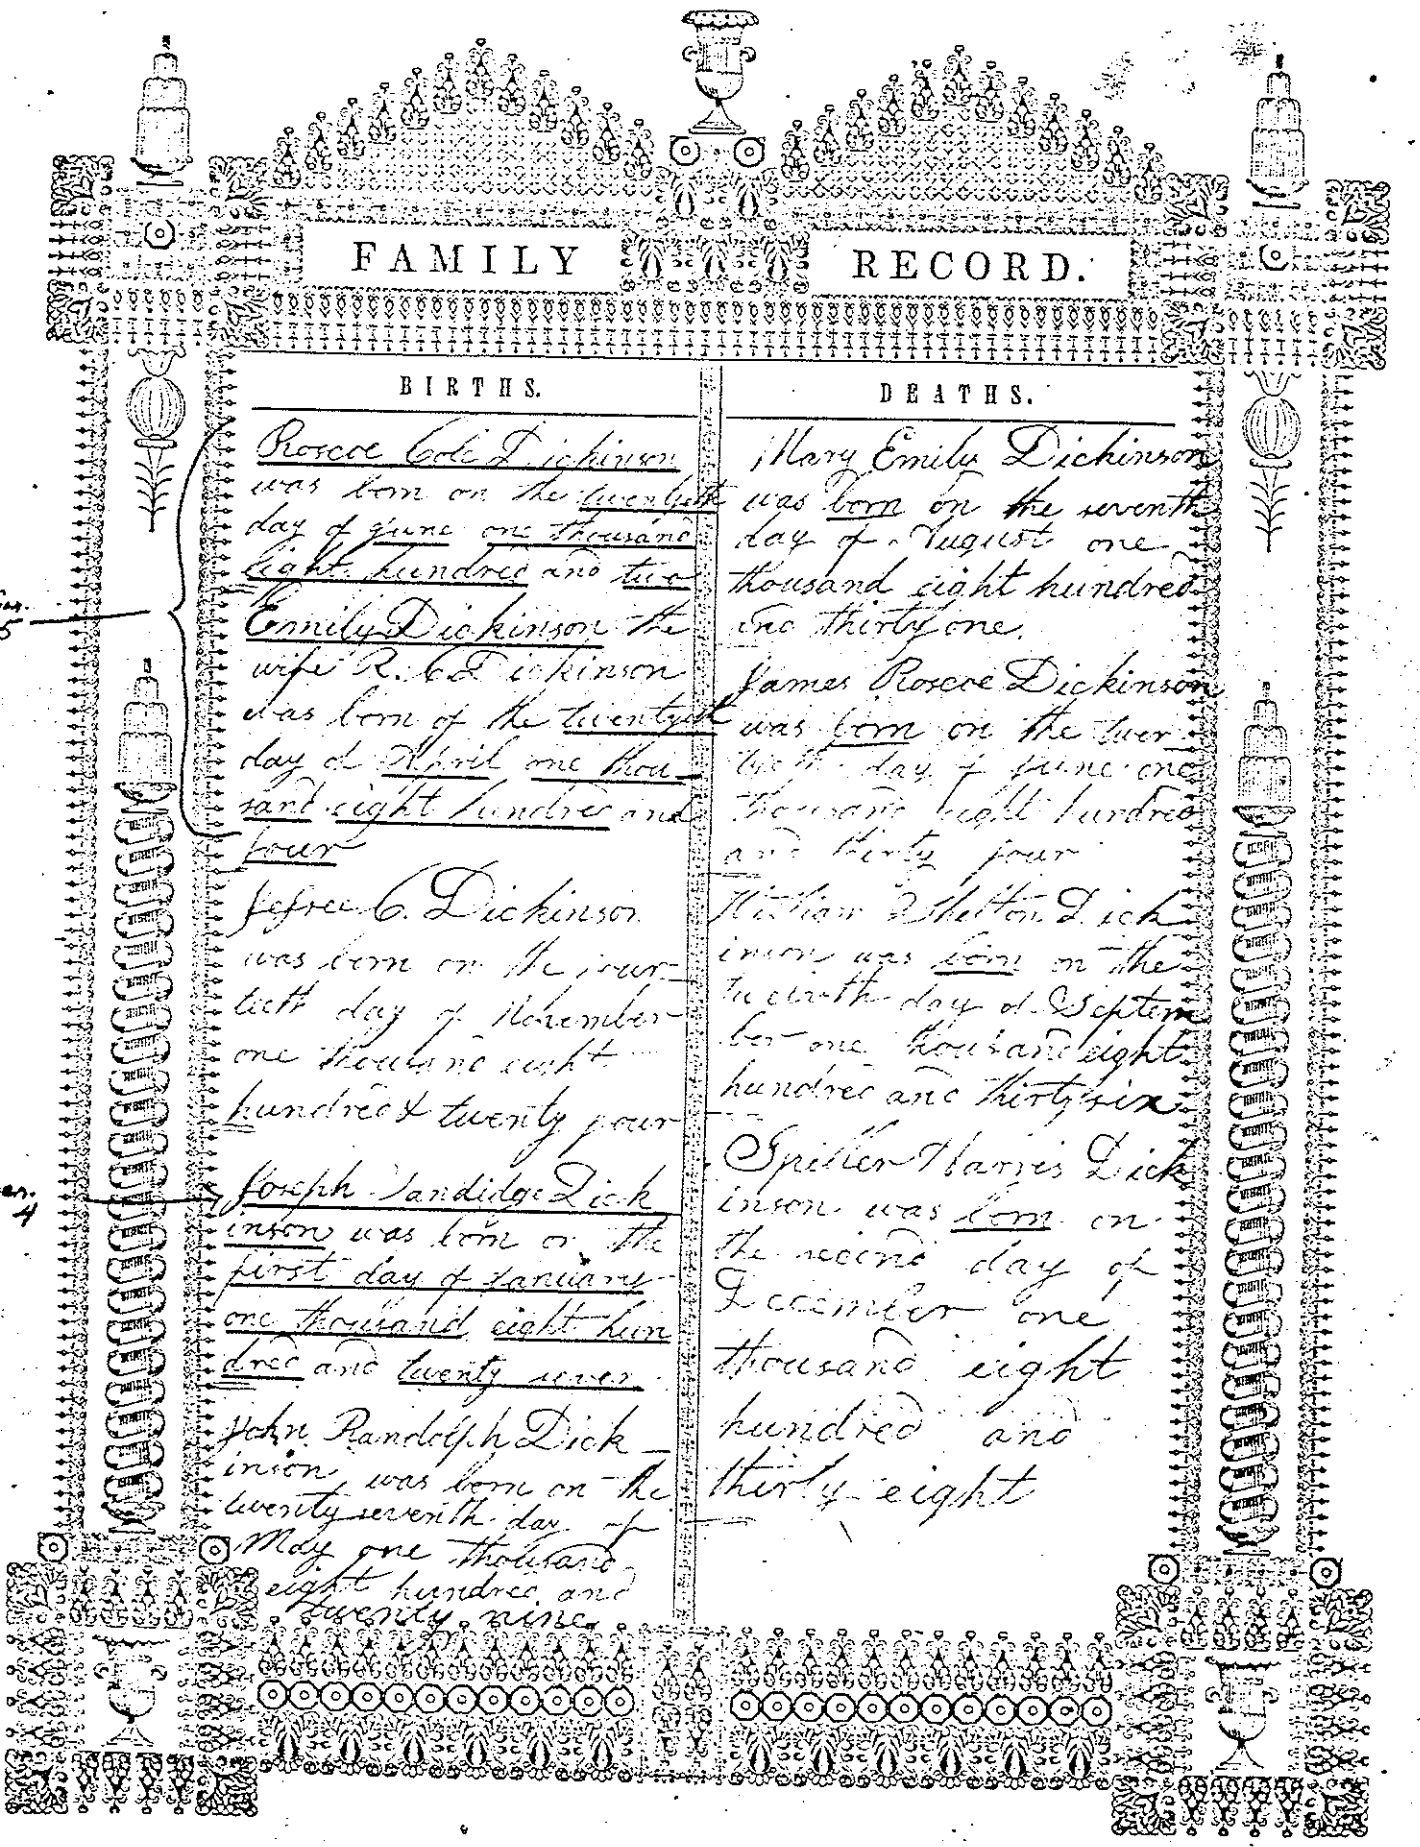 FAMILY RECORD.
BIRTHS.
Roscoe Cole Dickinson
was born on the twentieth
day of June one thousand
eight hundred and two
Emily Dickinson the
wife R. C. Dickinson
was born of the
day of April one thou
sand eight hundred and
four
C. Dickinson
was born on the four
teeth day of November
one thousand eight
hundred & twenty four
Joseph Sandidge Dick
inson was born on the
first day of January
one thousand eight hun
dred and twenty seven
John Randolph Dick
inson was born on the
twenty seventh day of
May one thousand
eight hundred and
twenty nine.
DEATHS.
Mary Emily Dickinson
was born on the seventh
day of August one
thousand eight hundred
and thirty one.
James Roscoe Dickinson
was born on the
day of June one
thousand eight hundred
and thirty four
William Shelton Dick
inson was born on the
day of Septem
ber one thousand eight
hundred and thirty six
Spiller Harris Dick
inson was born on
the second day of
December one
thousand eight
hundred and
thirty eight
5
4